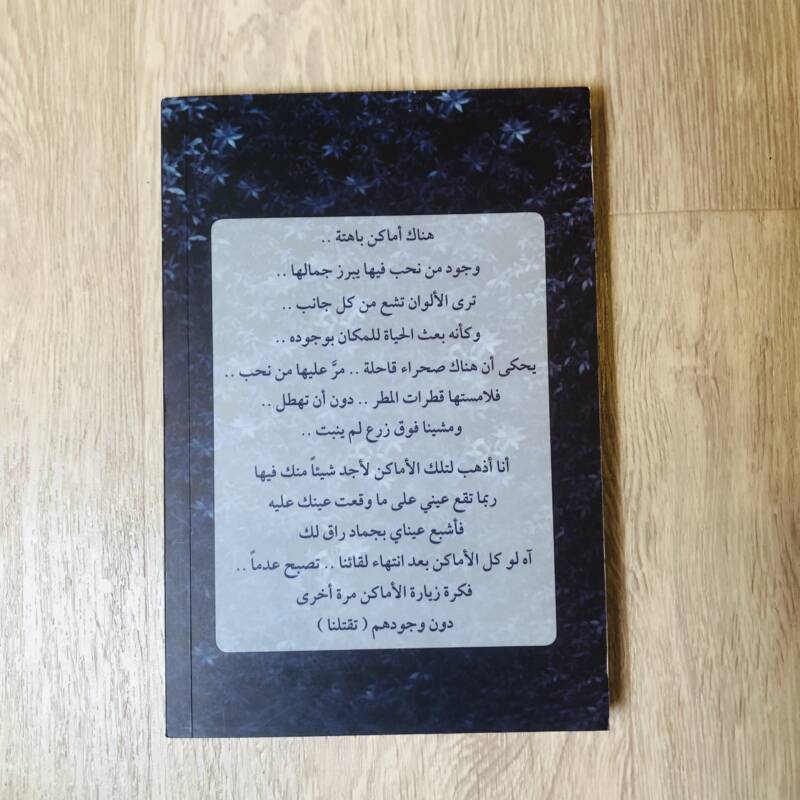 هناك أماكن باهتة ..
وجود من نحب فيها يبرز جمالها ..
ترى الألوان تشع من كل جانب ..
وكأنه بعث الحياة للمكان بوجوده ..
يحكى أن هناك صحراء قاحلة .. مرَّ عليها من نحب ..
فلامستها قطرات المطر .. دون أن تهطل ..
ومشينا فوق زرع لم ينبت ..
أنا أذهب لتلك الأماكن لأجد شيئاً منك فيها
ربما تقع عيني على ما وقعت عينك عليه
فأشبع عيناي بجماد راق لك
آه لو كل الأماكن بعد انتهاء لقائنا .. تصبح عدماً ..
فكرة زيارة الأماكن مرة أخرى
دون وجودهم ( تقتلنا )